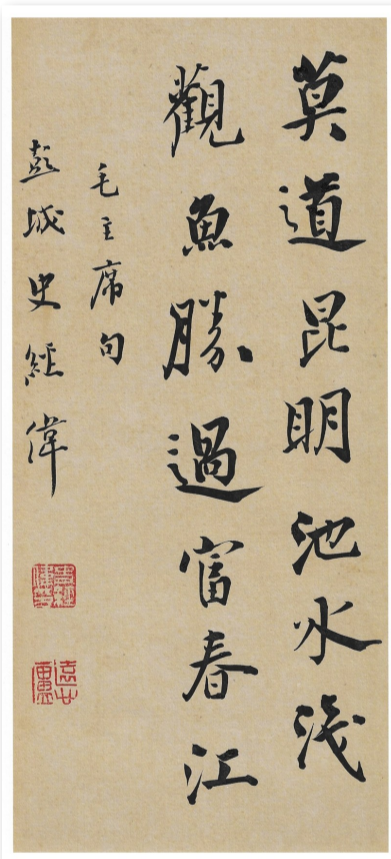 莫道昆明池水淺
觀魚勝過富春江
毛主席句
彭城史經偉